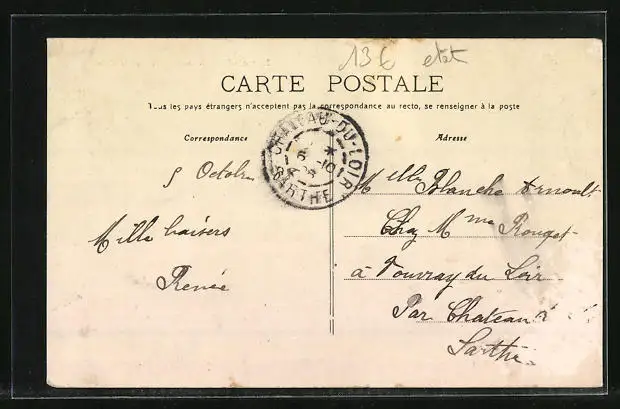 13€ etat
CARTE POSTALE
Tous les pays étrangers n'acceptent pas la correspondance au recto, se renseigner à la poste
Correspondance
Adresse
CHATEAU-DU-LOIR
SARTHE
5 Octobre
Mille baisers
Renée
Melle Blanche Arnoult
Chez Mme Rouget
à Vouvray du Loir
Par Chateau
Sarthe